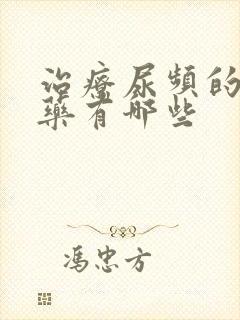 治療尿頻的
藥有哪些
馮忠方